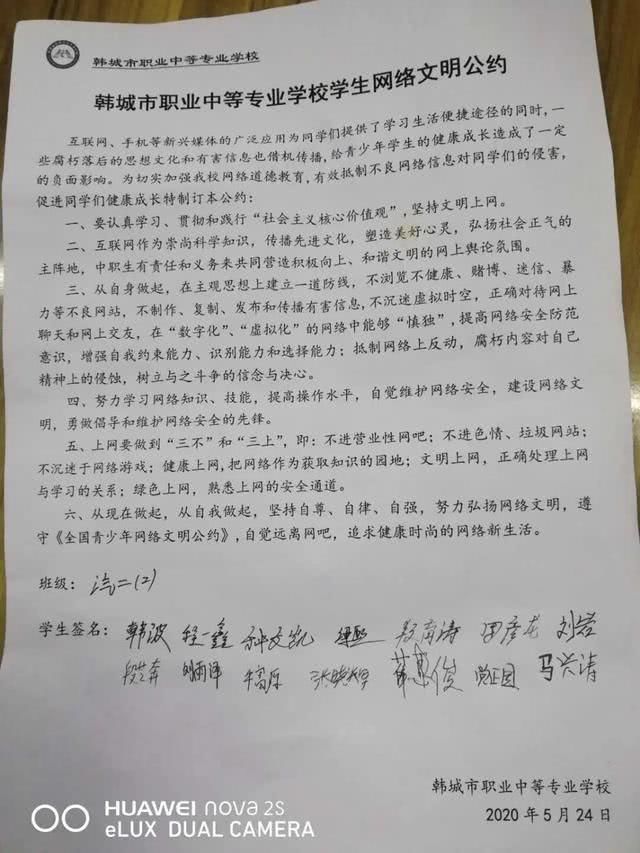 韩城市职业中等专业学校
韩城市职业中等专业学校学生网络文明公约
互联网、手机等新兴媒体的广泛应用为同学们提供了学习生活便捷途径的同时,一
些腐朽落后的思想文化和有害信息也借机传播,给青少年学生的健康成长造成了一定
的负面影响。为切实加强我校网络道德教育,有效抵制不良网络信息对同学们的侵害,
促进同学们健康成长特制订本公约:
一、要认真学习、贯彻和践行“社会主义核心价值观”,坚持文明上网。
二、互联网作为崇尚科学知识,传播先进文化,塑造美好心灵,弘扬社会正气的
主阵地,中职生有责任和义务来共同营造积极向上、和谐文明的网上舆论氛围。
三、从自身做起,在主观思想上建立一道防线,不浏览不健康、赌博、迷信、暴
力等不良网站,不制作、复制、发布和传播有害信息,不沉迷虚拟时空,正确对待网上
聊天和网上交友,在“数字化”、“虚拟化”的网络中能够“慎独”,提高网络安全防范
意识,增强自我约束能力、识别能力和选择能力;抵制网络上反动,腐朽内容对自己
精神上的侵蚀,树立与之斗争的信念与决心。
四、努力学习网络知识、技能,提高操作水平,自觉维护网络安全,建设网络文
明,勇做倡导和维护网络安全的先锋。
五、上网要做到“三不”和“三上”,即:不进营业性网吧;不进色情、垃圾网站;
不沉迷于网络游戏;健康上网,把网络作为获取知识的园地;文明上网,正确处理上网
与学习的关系;绿色上网,熟悉上网的安全通道。
六、从现在做起,从自我做起,坚持自尊、自律、自强,努力弘扬网络文明,遵
守《全国青少年网络文明公约》,自觉远离网吧,追求健康时尚的网络新生活。
班级:汽二(2)
学生签名:韩波 程一鑫 田彦龙 刘岩
马兴涛
韩城市职业中等专业学校
2020年5月24日
HUAWEI nova 2S
eLUX DUAL CAMERA